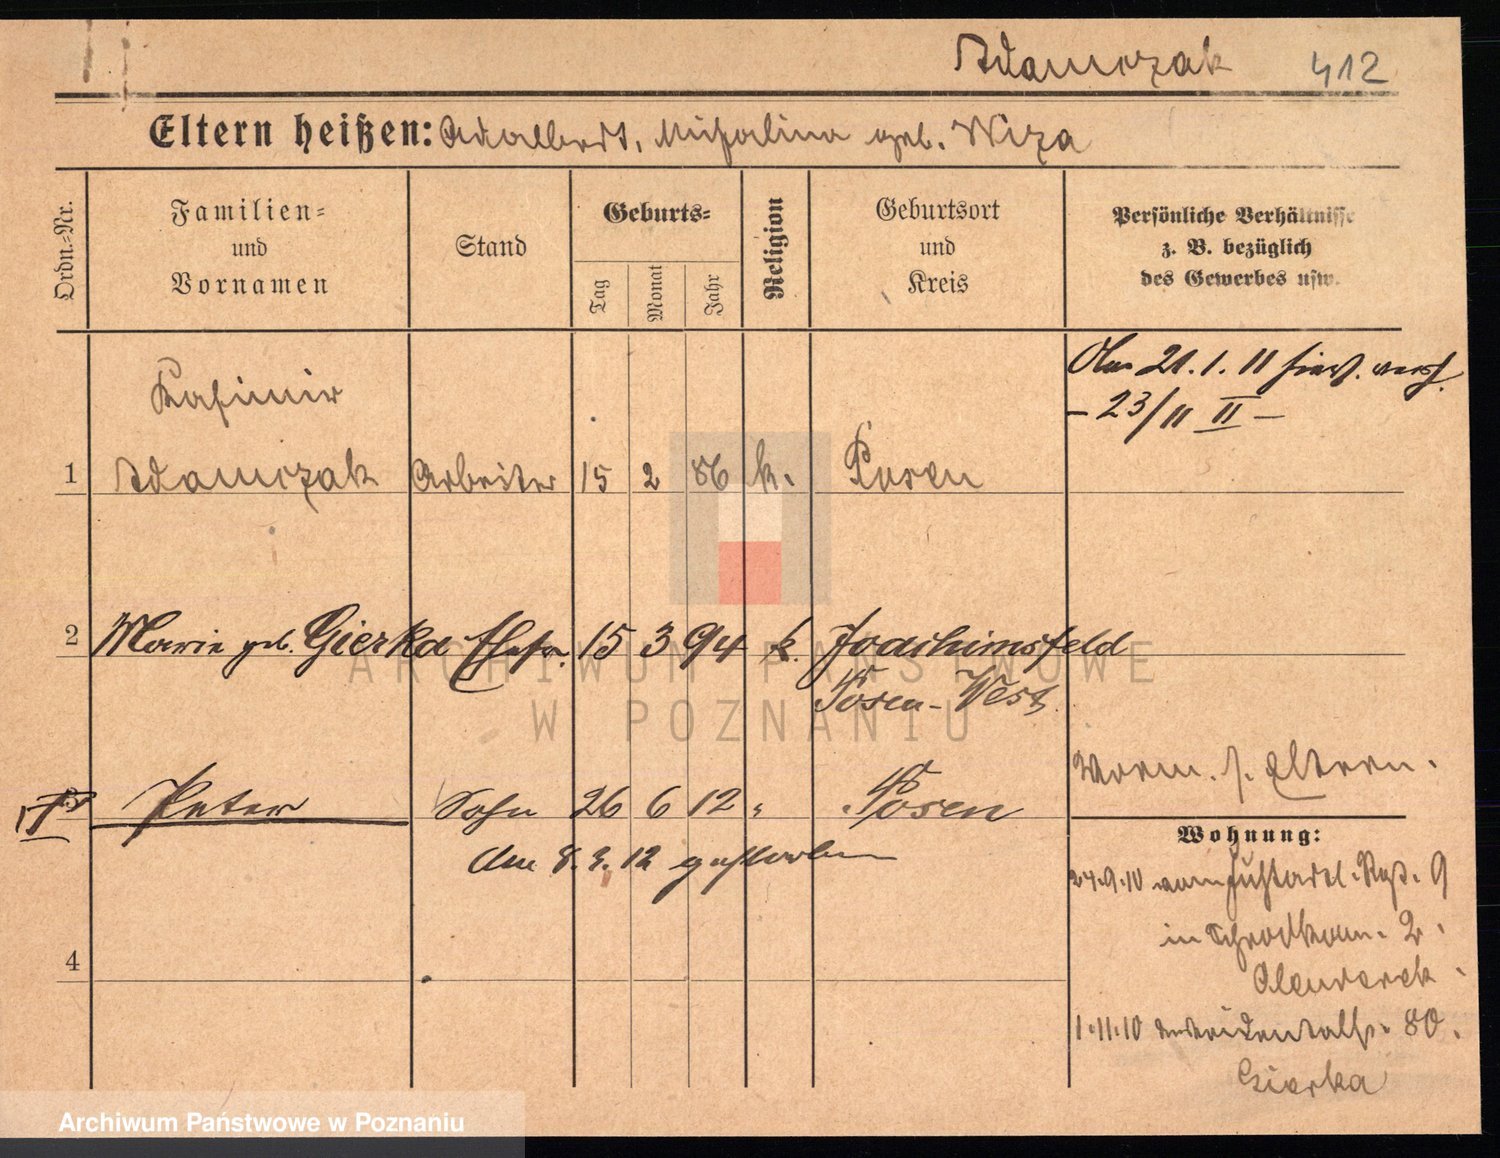 Adamczak 412
Eltern heißen: Adalbert, Michalina geb. Wiza
Ordn.=Nr.
Familien=
und
Vornamen
Stand
Geburts=
Tag
Monat
Jahr
Religion
Geburtsort
und
Kreis
Persönliche Verhältnisse
z. B. bezüglich
des Gewerbes usw.
Am 21.1.11 hier. verh.
– 23/11 II –
Kasimir
1 Adamczak Arbeiter 15 2 86 k. Posen
2 Marie geb. Gierka Ehefr. 15 3 94 k. Joachimsfeld
Posen-West
Vorm. s. Eltern.
Peter Sohn 26 6 12 " Posen
Am 8. 12 gestorben
4
Wohnung:
24.9.10 vom 9
in Schrodkam. 2.
1.11.10 80.
Gierka
ARCHIWUM PAŃSTWOWE
W POZNANIU
Archiwum Państwowe w Poznaniu